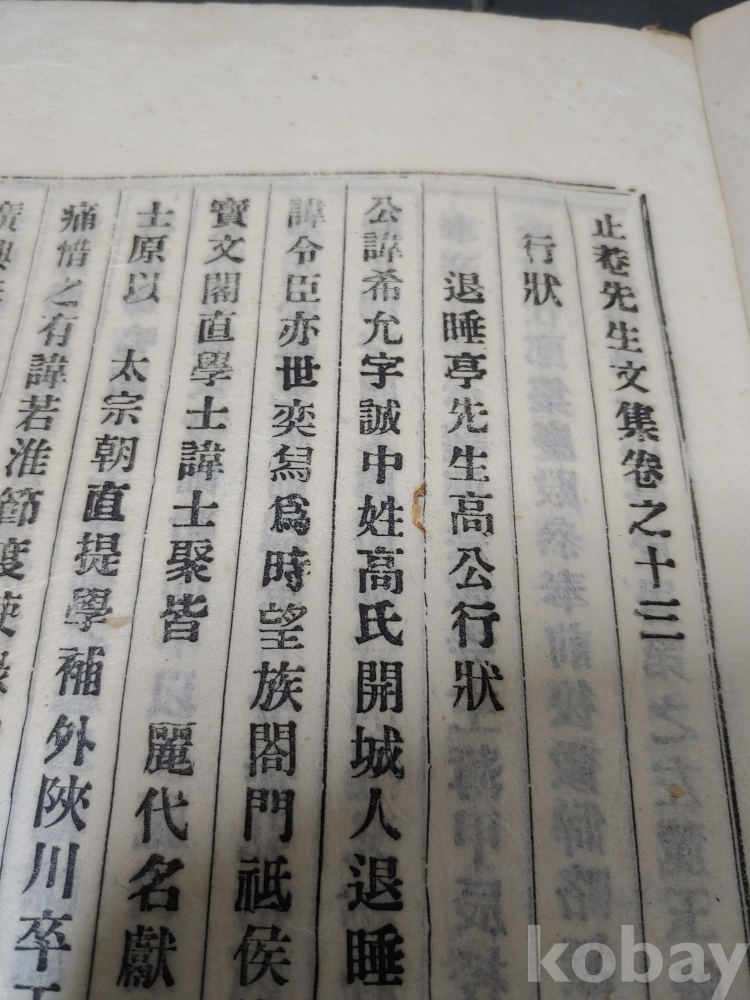 止菴先生文集卷之十三
行狀
退睡亭先生高公行狀
公諱希允字誠中姓高氏開城人退睡
諱令臣亦世奕舃爲時望族閤門祗侯
寶文閣直學士諱士聚皆 麗代名獻
士原以 太宗朝直提學補外陜川卒
痛惜之有諱若淮節度使
kobay